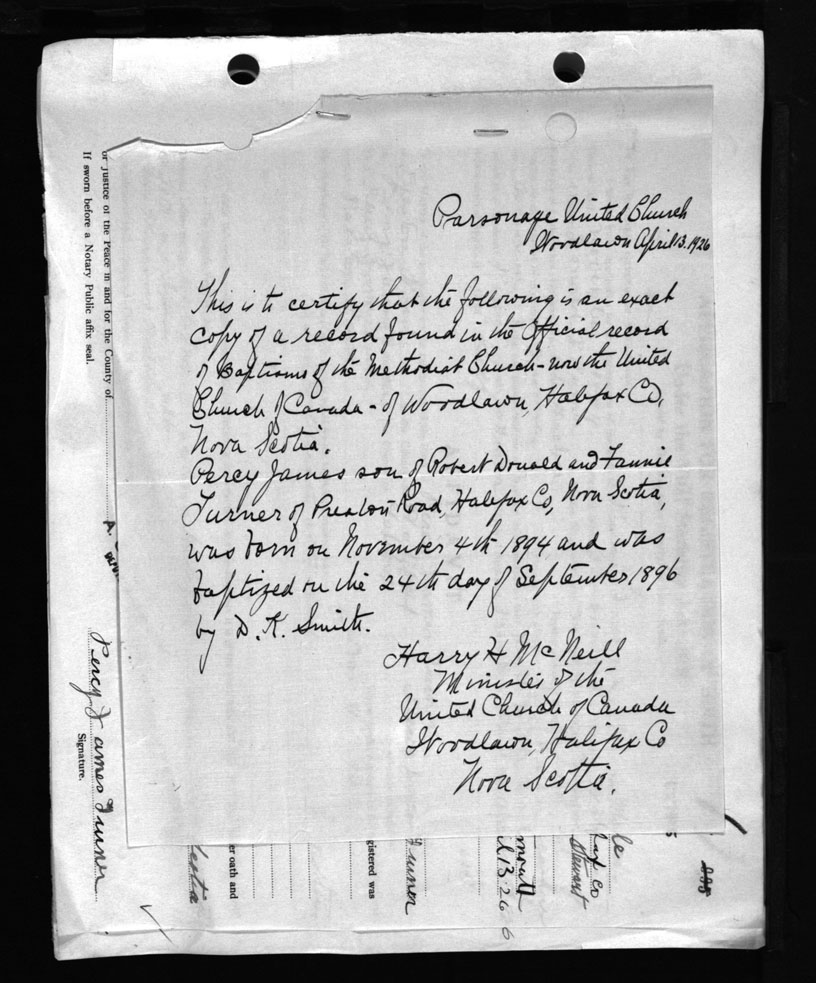 Parsonage United Church
Woodlawn April 13. 1926
This is to certify that the following is an exact
copy of a record found in the Official record
of Baptisms of the Methodist Church - now the United
Church of Canada - of Woodlawn, Halifax Co,
Nova Scotia.
Percy James son of Robert Donald and Fannie
Turner of Preston Road, Halifax Co, Nova Scotia,
was born on November 4th 1894 and was
baptized on the 24th day of September 1896
by D. K. Smith.
Harry H McNeill
Minister of the
United Church of Canada
Woodlawn, Halifax Co
Nova Scotia.
or Justice of the Peace in and for the County of
If sworn before a Notary Public affix seal.
Percy James Turner
Signature.
er oath and
gistered was
Turner
mouth
il 13. 26
ax Co
Stewart